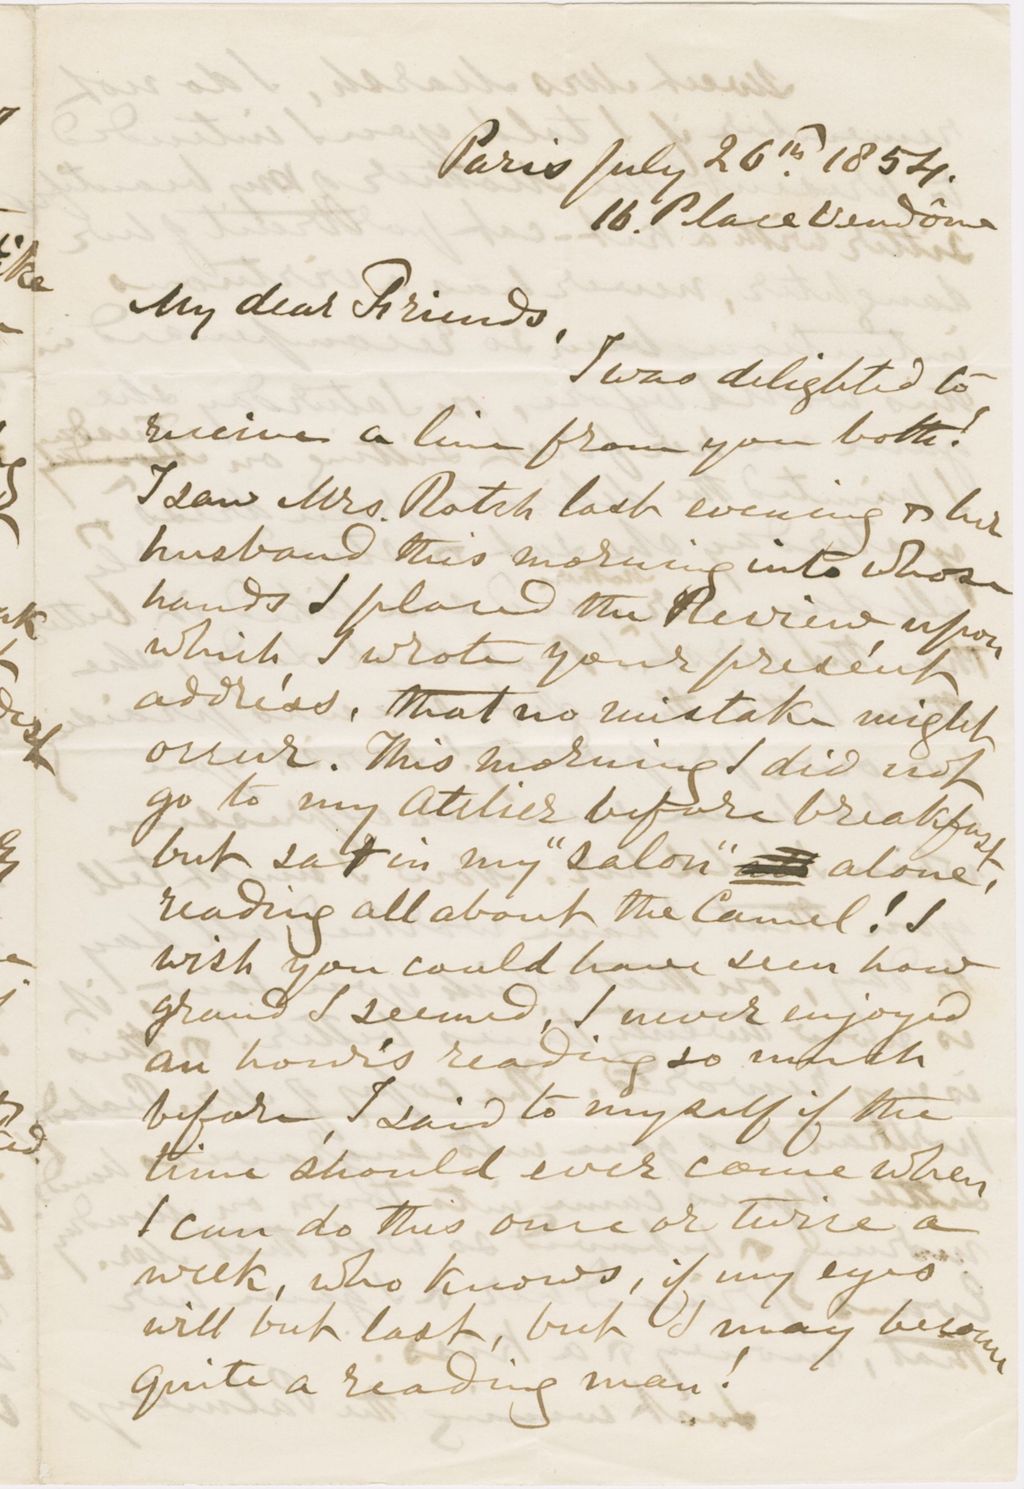 Paris July 26th. 1854.
16. Place Vendôme
My dear Friends,
I was delighted to
receive a line from you both!
I saw Mrs. Rotch last evening & her
husband this morning into whose
hands I placed the Review, upon
which I wrote your present
address, that no mistake might
occur. This morning I did not
go to my Atelier before breakfast,
but sat in my "salon" alone,
reading all about the Camel! I
wish you could have seen how
grand I seemed, I never enjoyed
an hour's reading so much
before, I said to myself if the
time should ever come when
I can do this once or twice a
week, who knows, if my eyes
will but last, but I may become
quite a reading man!